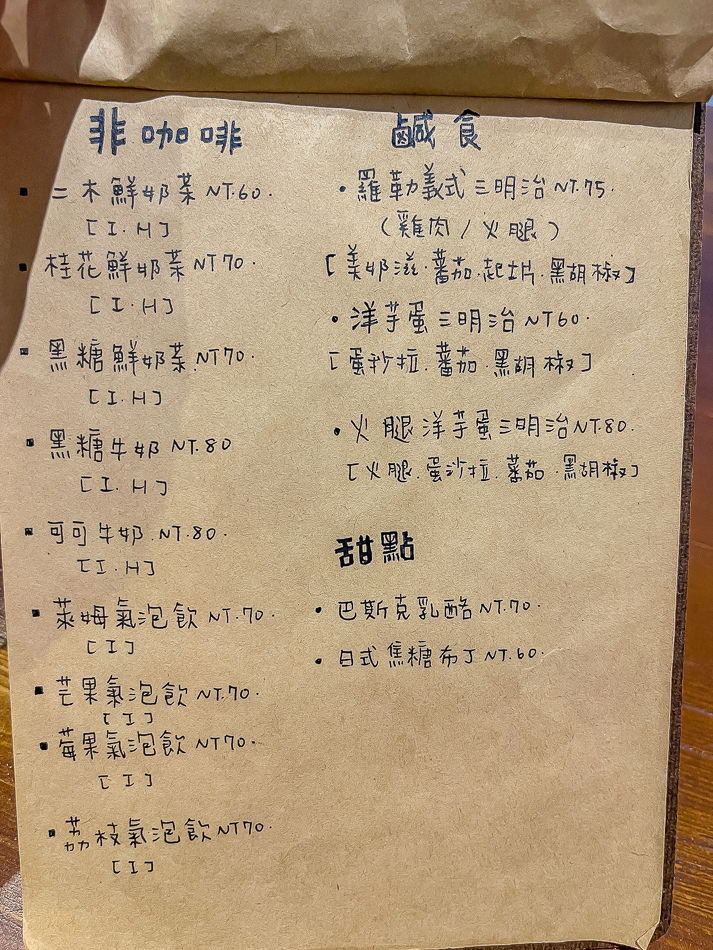 非咖啡
二木鮮奶茶 NT.60.
[I.H]
桂花鮮奶茶 NT70.
[I.H]
黑糖鮮奶茶 NT70.
[I.H]
黑糖牛奶 NT.80
[I.H]
可可牛奶 NT.80.
[I.H]
萊姆氣泡飲 NT.70.
[I]
芒果氣泡飲 NT.70.
[I]
莓果氣泡飲 NT70.
[I]
荔枝氣泡飲 NT70.
[I]
鹹食
羅勒義式三明治 NT.75.
(雞肉/火腿)
[美奶滋.蕃茄.起士片.黑胡椒]
洋芋蛋三明治 NT60.
[蛋沙拉.蕃茄.黑胡椒]
火腿洋芋蛋三明治 NT.80.
[火腿.蛋沙拉.蕃茄.黑胡椒]
甜點
巴斯克乳酪 NT.70.
日式焦糖布丁 NT.60.